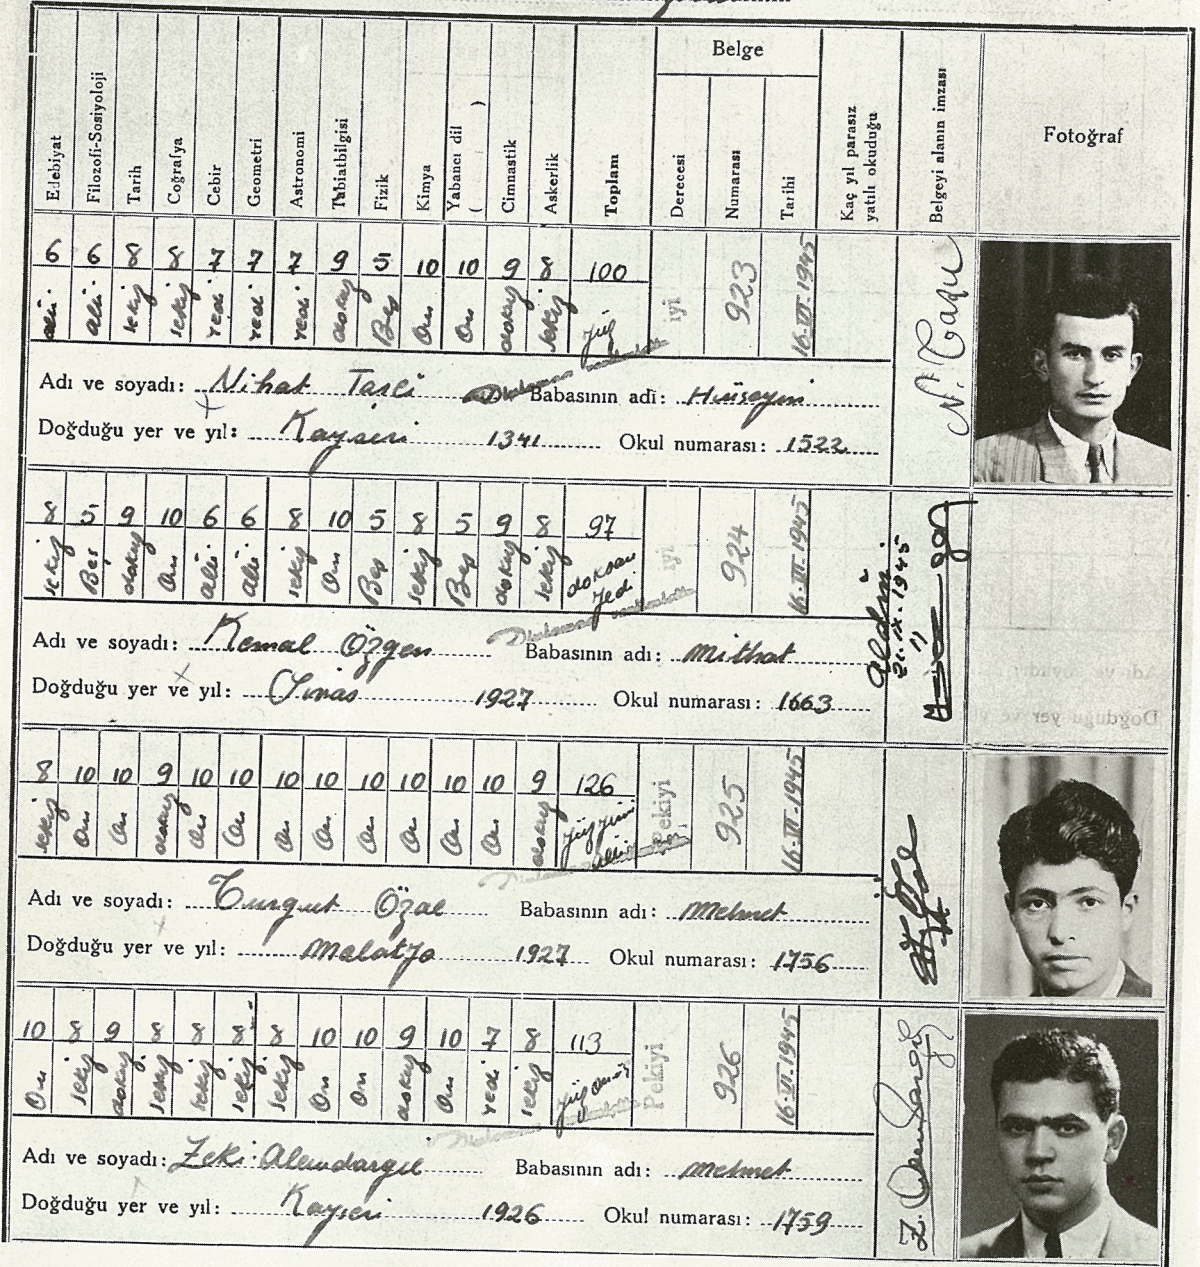 Belge
Edebiyat
Filozofi-Sosiyoloji
Tarih
Coğrafya
Cebir
Geometri
Astronomi
Tabiatbilgisi
Fizik
Kimya
Yabancı dil
( )
Cimnastik
Askerlik
Toplam
Derecesi
Numarası
Tarihi
Kaç yıl parasız
yatılı okuduğu
Belgeyi alanın imzası
Fotoğraf
6 6 8 8 7 7 7 9 5 10 10 9 8 100
altı altı sekiz sekiz yedi yedi yedi dokuz Beş On On dokuz sekiz yüz
iyi 923 16.VI.1945
Adı ve soyadı: Nihat Taşçi Babasının adı: Hüseyin
Doğduğu yer ve yıl: Kayseri 1341 Okul numarası: 1522
8 5 9 10 6 6 8 10 5 8 5 9 8 97
sekiz Beş dokuz On altı altı sekiz On Beş sekiz Beş dokuz sekiz doksan
yedi
iyi 924 16.VI.1945
Aldım
Adı ve soyadı: Kemal Özgen Babasının adı: Mithat
Doğduğu yer ve yıl: Sivas 1927 Okul numarası: 1663
8 10 10 9 10 10 10 10 10 10 10 10 9 126
sekiz On On dokuz On On On On On On On On dokuz yüz yirmi
altı
Pekiyi 925 16.VI.1945
Adı ve soyadı: Turgut Özal Babasının adı: Mehmet
Doğduğu yer ve yıl: Malatya 1927 Okul numarası: 1756
10 8 9 8 8 8 8 10 10 9 10 7 8 113
On sekiz dokuz sekiz sekiz sekiz sekiz On On dokuz On yedi sekiz yüz onüç
Pekiyi 926 16.VI.1945
Adı ve soyadı: Zeki Alemdargil Babasının adı: Mehmet
Doğduğu yer ve yıl: Kayseri 1926 Okul numarası: 1759